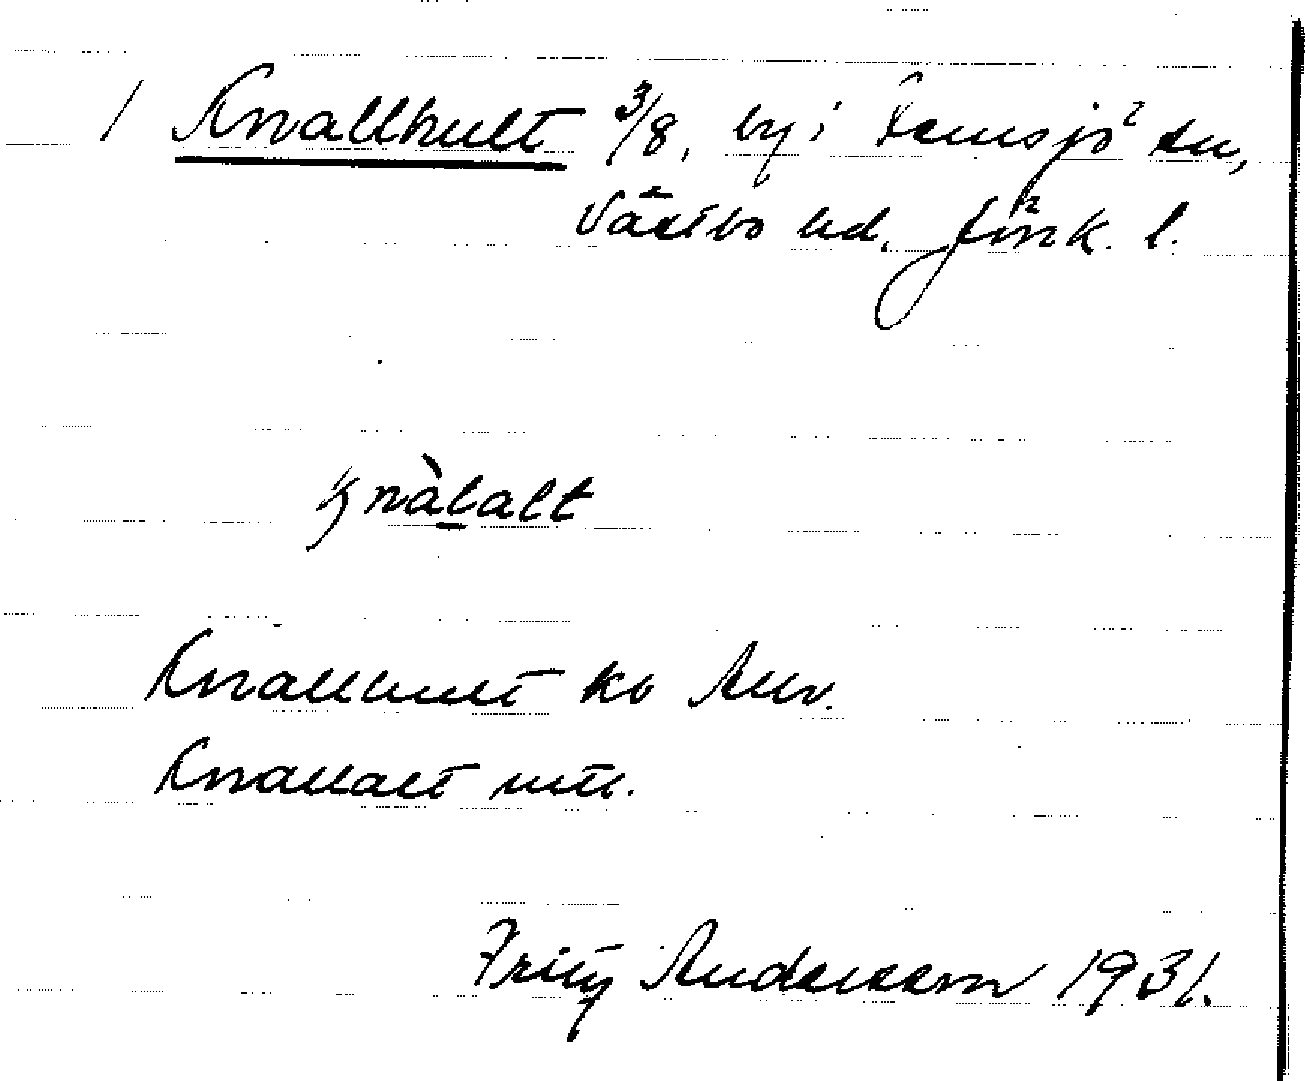 1 Knallhult 3/8, by i Femsjö sn,
Västbo hd, Jönk. l.
knàlalt
Knallhult ko Knallalt mtl.
Fritz Andersson 1931.